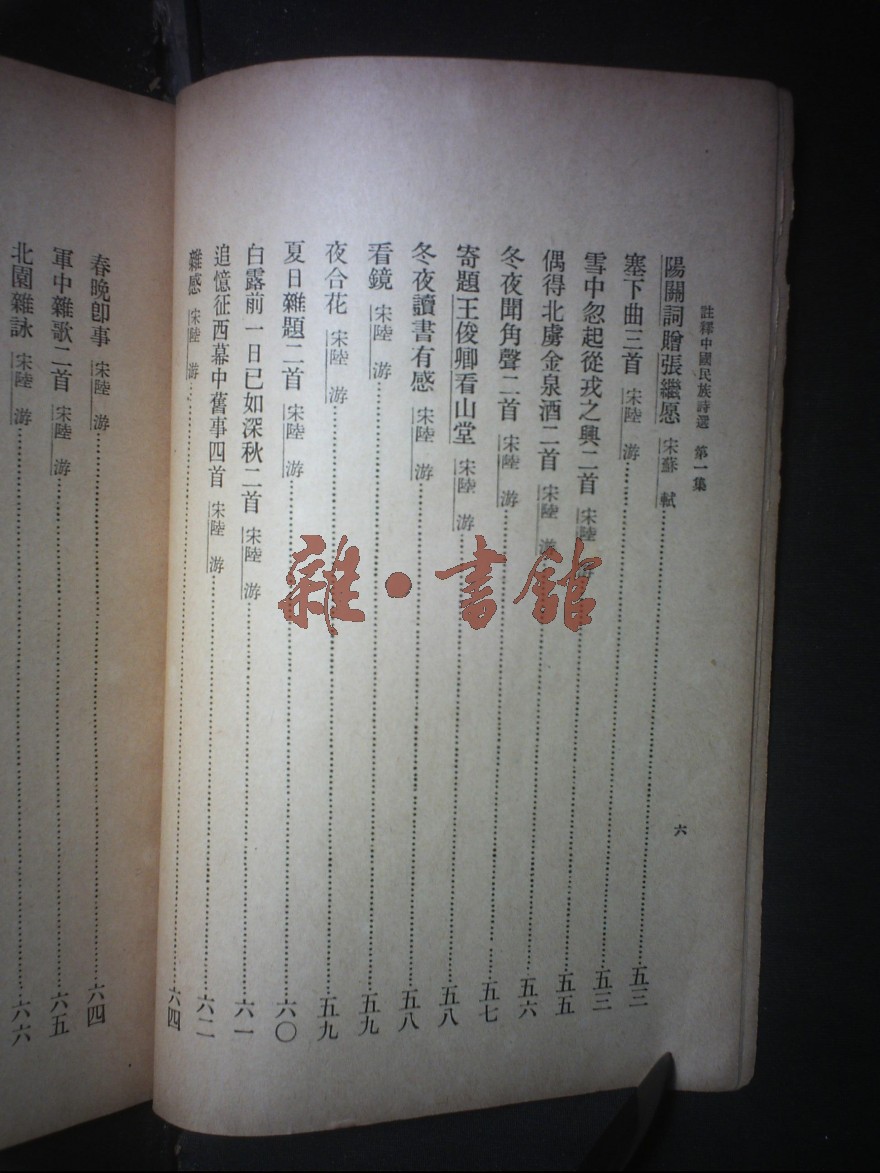 註釋中國民族詩選 第一集
六
陽關詞贈張繼愿 宋蘇 軾……五三
塞下曲三首 宋陸 游……五三
雪中忽起從戎之興二首 宋陸 游……五五
偶得北虜金泉酒二首 宋陸 游……五六
冬夜聞角聲二首 宋陸 游……五七
寄題王俊卿看山堂 宋陸 游……五八
冬夜讀書有感 宋陸 游……五八
看鏡 宋陸 游……五九
夜合花 宋陸 游……五九
夏日雜題二首 宋陸 游……六〇
白露前一日已如深秋二首 宋陸 游……六一
追憶征西幕中舊事四首 宋陸 游……六二
雜感 宋陸 游……六四
春晚卽事 宋陸 游……六四
軍中雜歌二首 宋陸 游……六五
北園雜詠 宋陸 游……六六
雜·書館